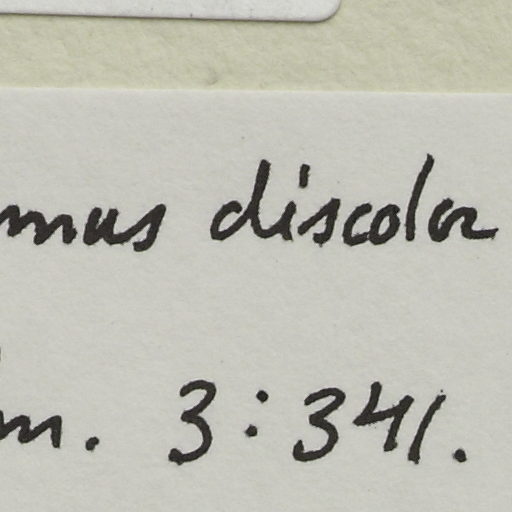 mus discolor
m. 3:341.